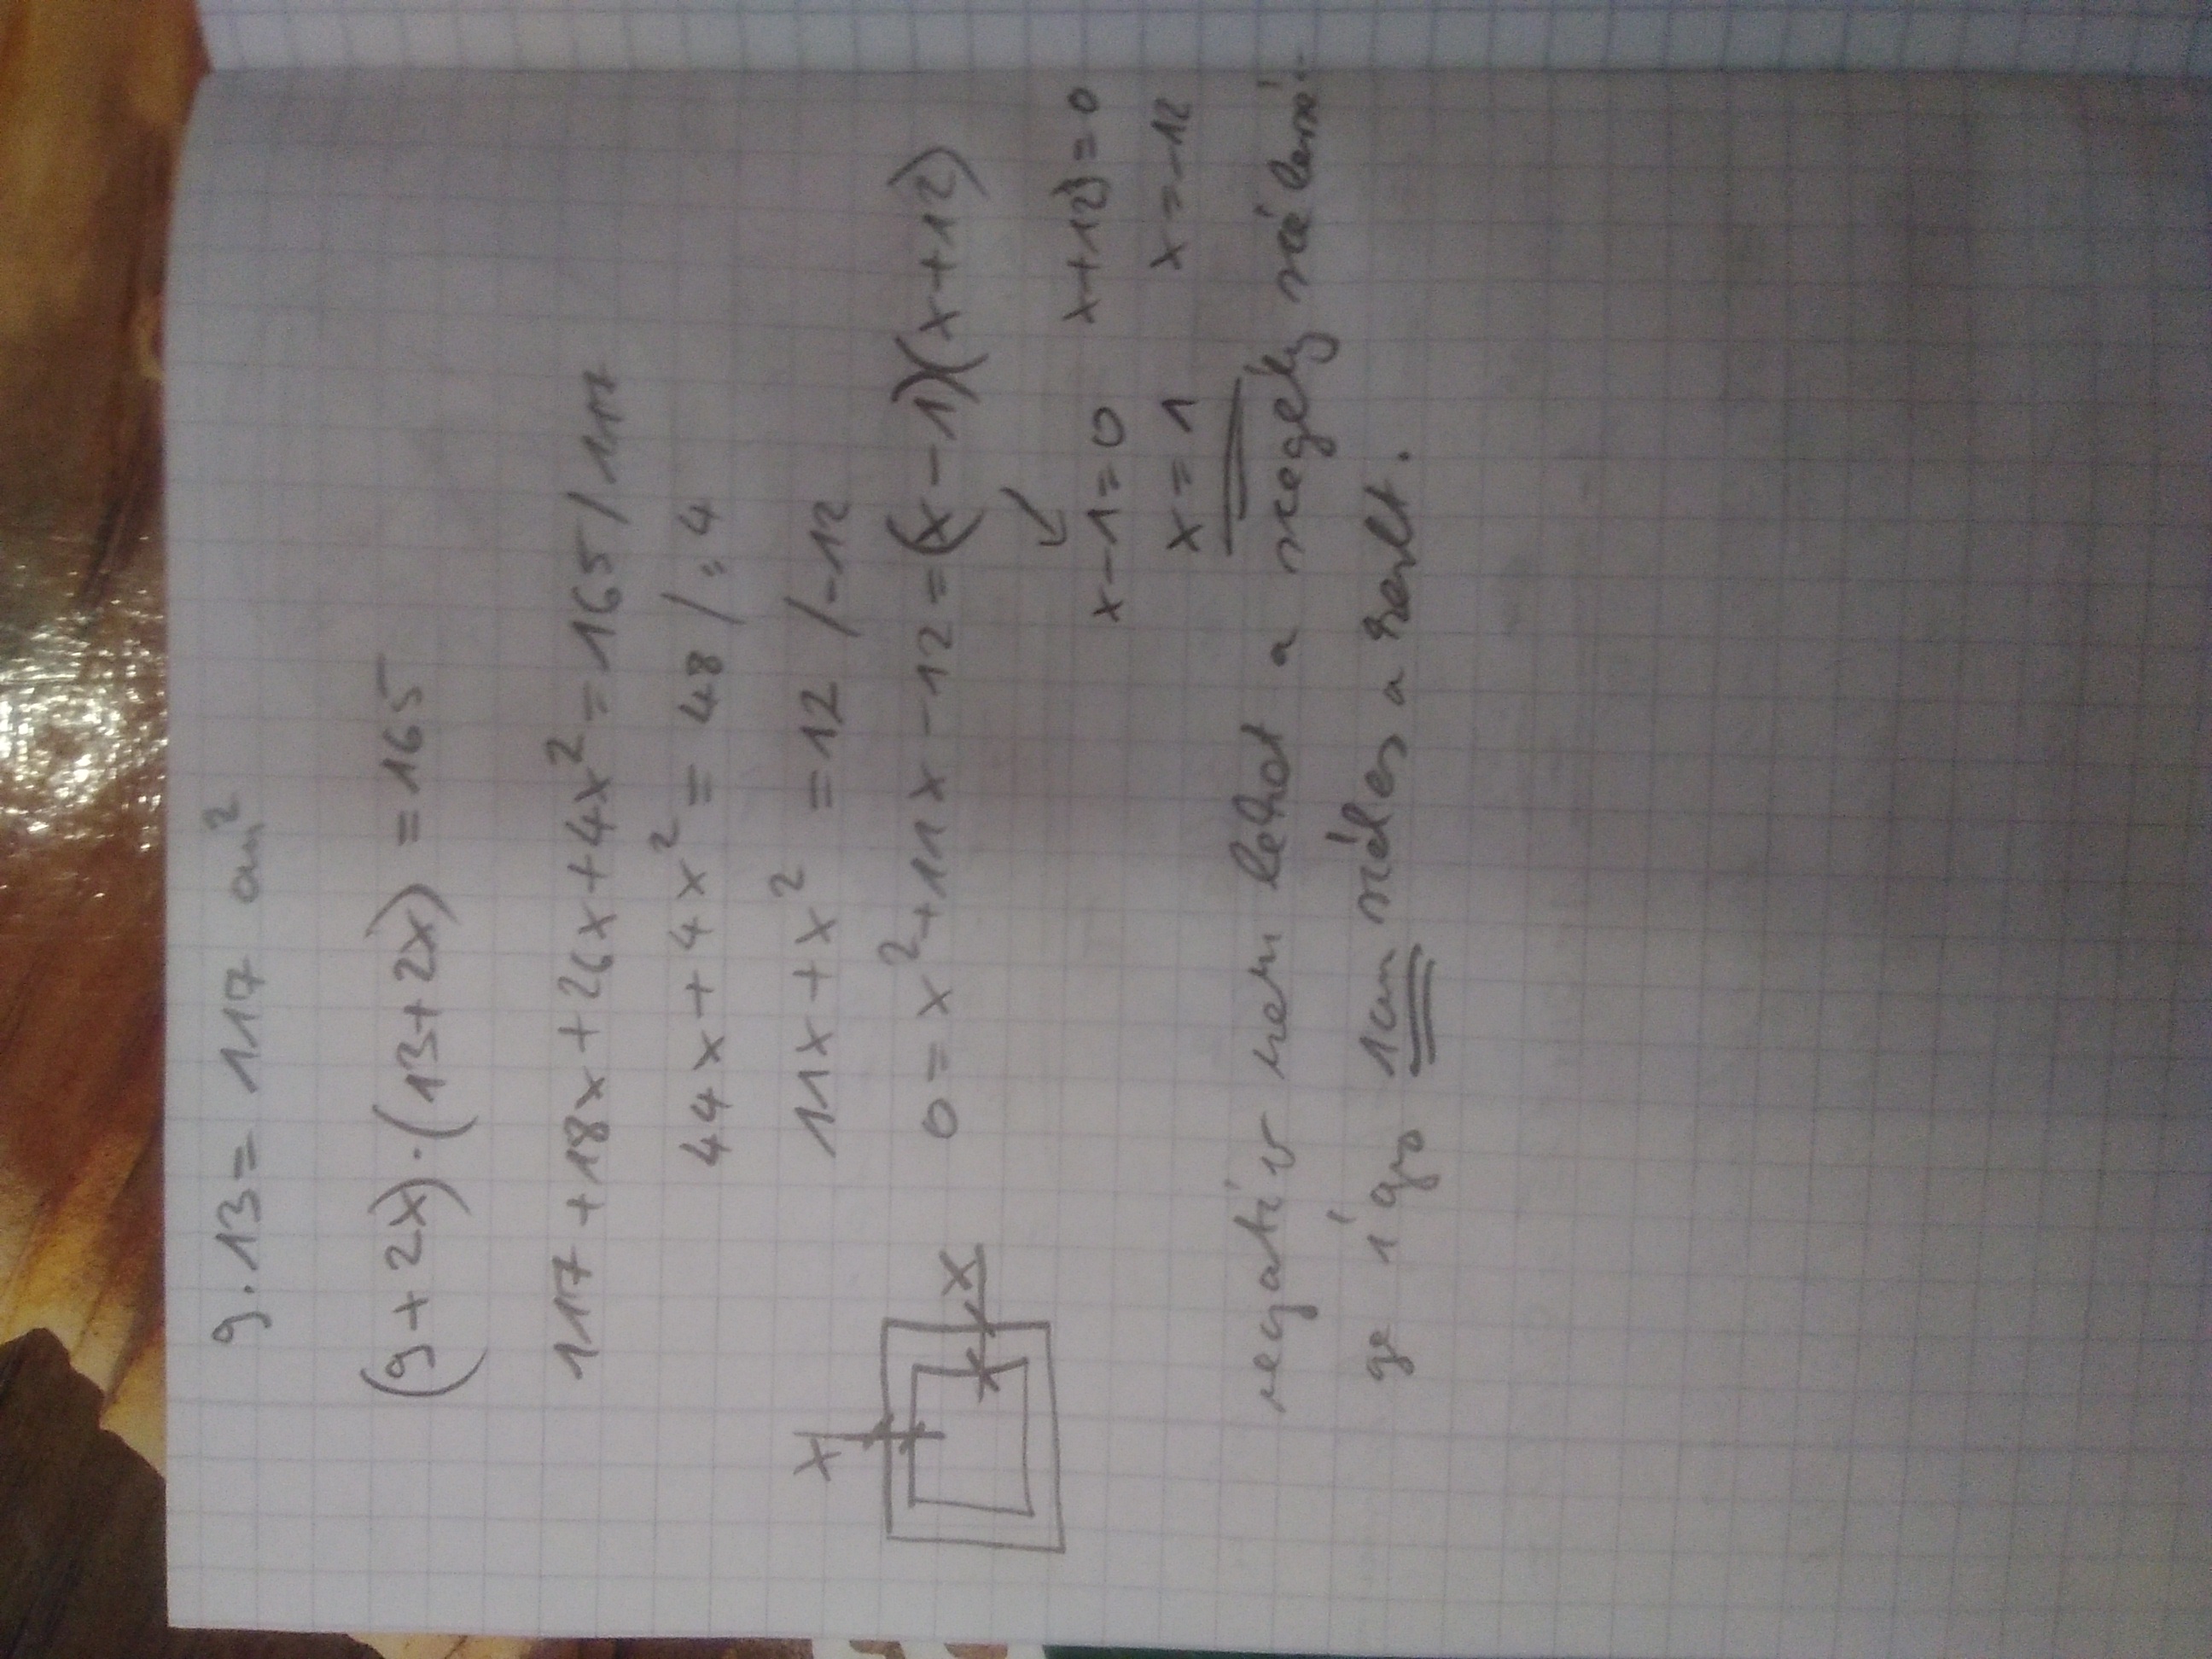 9·13= 117 cm²
(9+2x)·(13+2x) = 165
117+18x+26x+4x²=165/117
44x+4x² = 48 /:4
11x+x² =12 /-12
0=x²+11x-12=(x-1)(x+12)
x-1=0 x+12)=0
x=1 x=-12
x
x
negatív nem lehet a szegély széless-
ge így 1cm széles a keret.